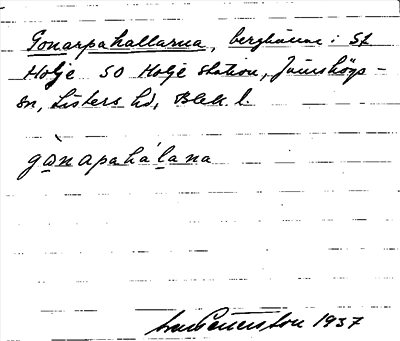 Gonarpahallarna, berghämne i St
Holje SO Holje station, Jämshögs-
sn, Listers hd, Blek. l.
gònapahálana
1937